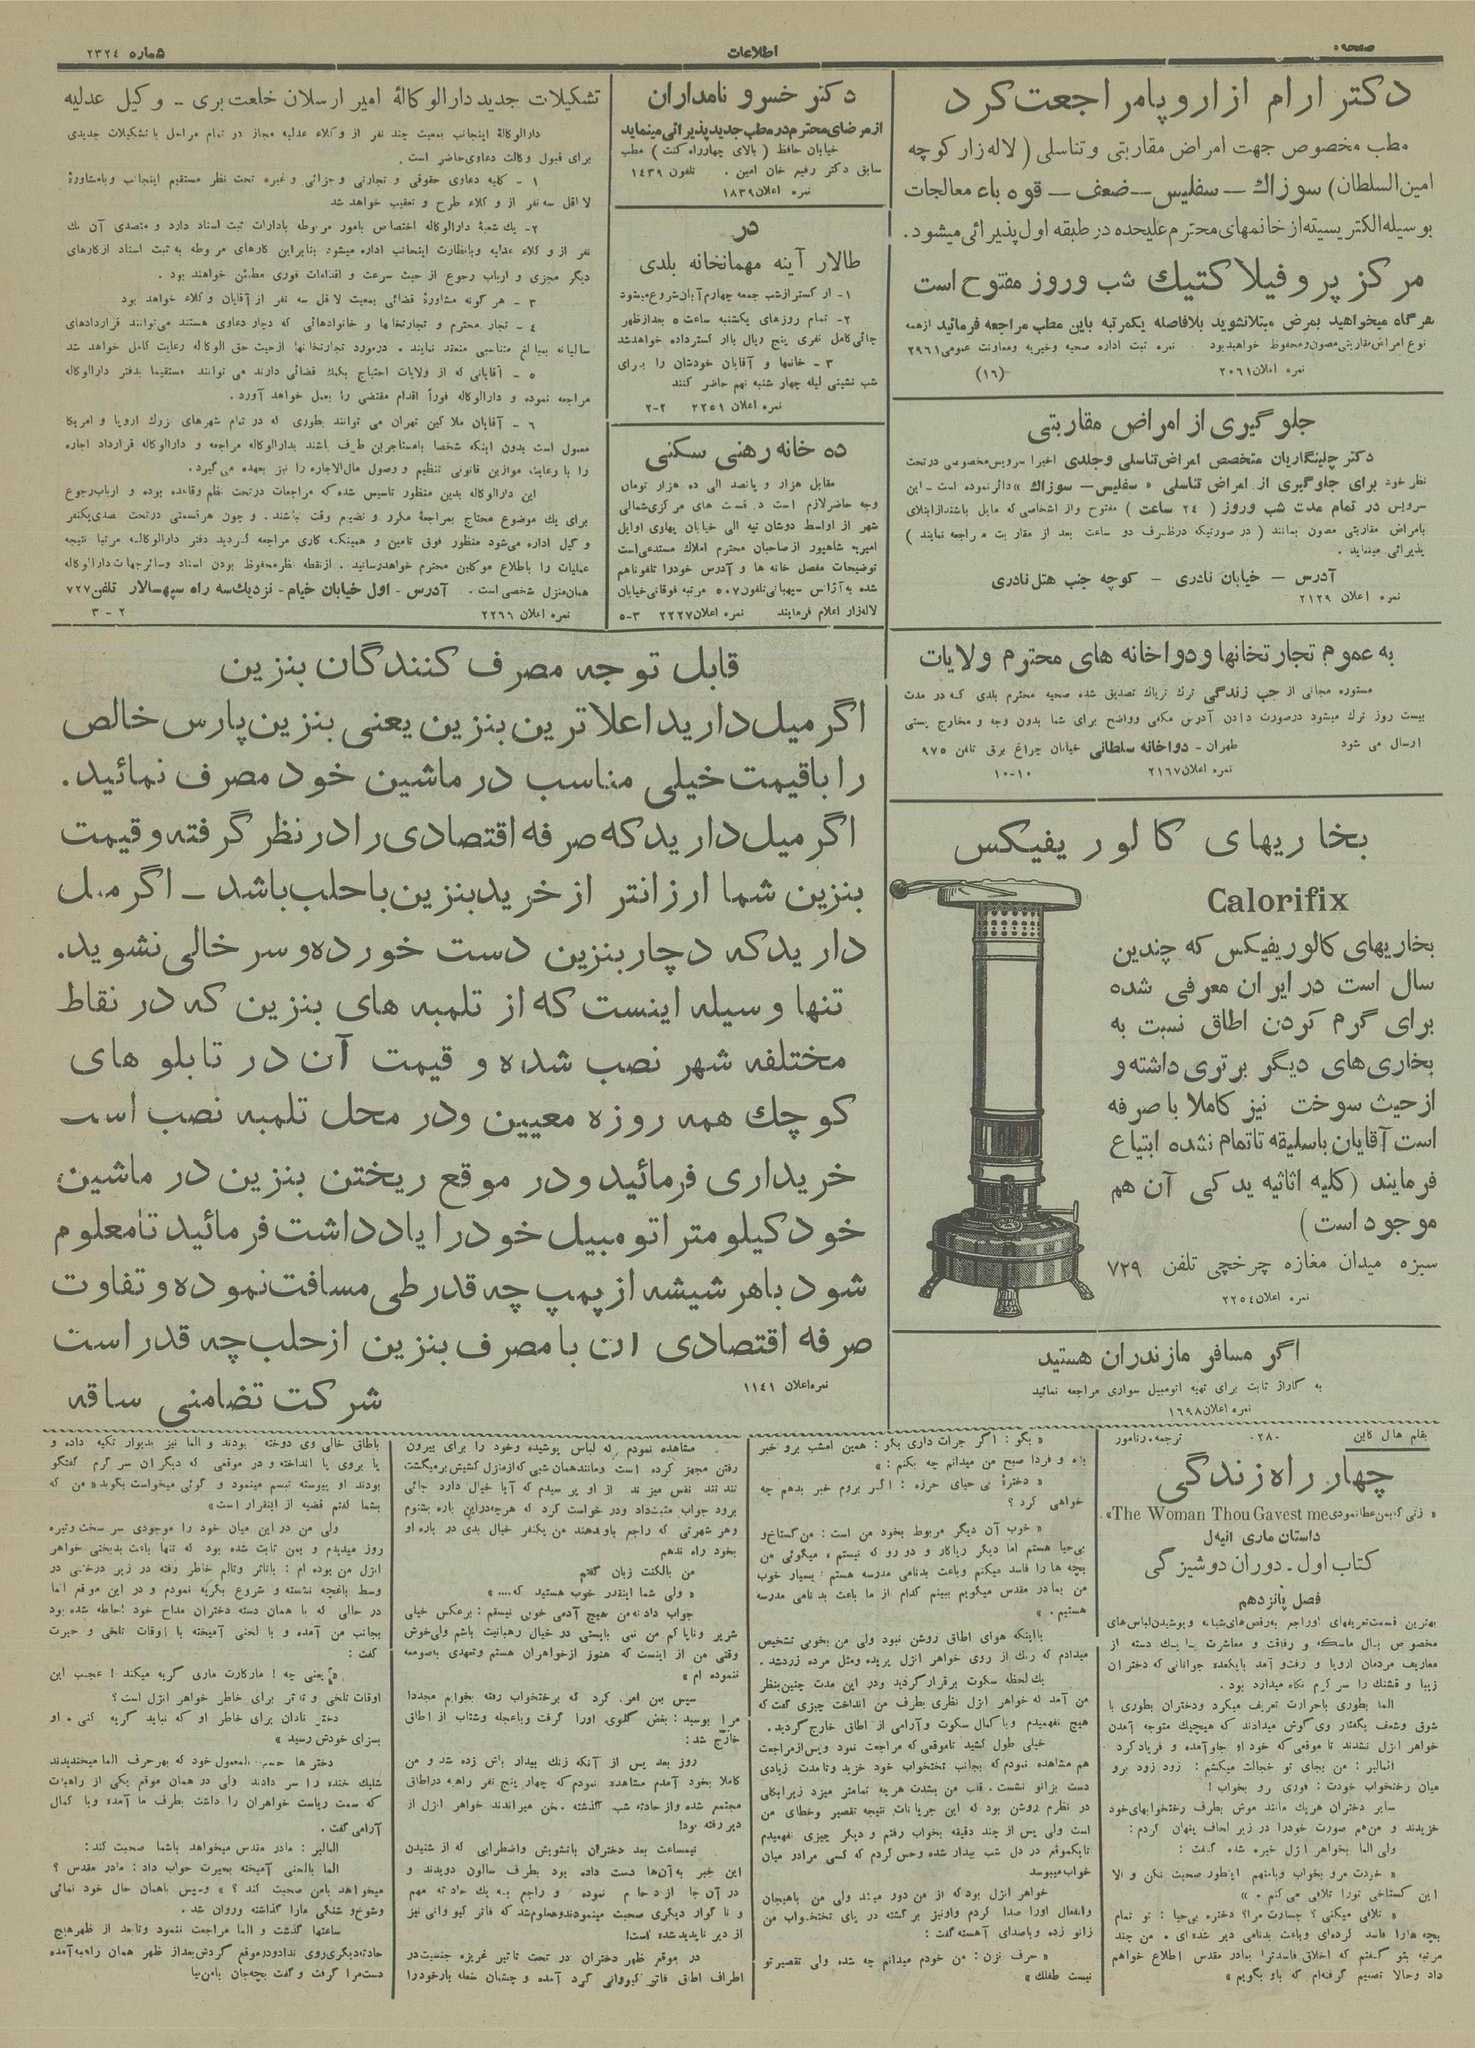 صفحه ٥
اطلاعات
شماره ٢٣٢٤
دکتر ارام از اروپا مراجعت کرد
مطب مخصوص جهت امراض مقاربتی و تناسلی ( لاله زار کوچه
امین السلطان) سوزاك — سفلیس — ضعف — قوه باء معالجات
بوسیله الکتریسیته از خانمهای محترم علیحده در طبقه اول پذیرائی میشود.
مرکز پروفیلاکتیك شب وروز مفتوح است
هرگاه میخواهید بمرض مبتلا نشوید بلافاصله یکمرتبه باین مطب مراجعه فرمائید ازهمه
نوع امراض مقاربتی مصون ومحفوظ خواهیدبود . نمره ثبت اداره صحیه وخیریه ومعاونت عمومی ٢٩٦١
نمره اعلان ٢٠٦١ (١٦)
جلوگیری از امراض مقاربتی
دکتر چلینگاریان متخصص امراض تناسلی وجلدی اخیرا سرویس مخصوصی درتحت
نظر خود برای جلوگیری از امراض تناسلی « سفلیس — سوزاك » دائر نموده است - این
سرویس در تمام مدت شب وروز ( ٢٤ ساعت ) مفتوح واز اشخاصی که مایل باشند از ابتلای
بامراض مقاربتی مصون بمانند ( در صورتیکه درظرف دو ساعت بعد از مقاربت مراجعه نمایند )
پذیرائی مینماید .
آدرس — خیابان نادری — کوچه جنب هتل نادری
نمره اعلان ٢١٢٩
به عموم تجارتخانها ودواخانه های محترم ولایات
مستوره مجانی از حب زندگی ترك تریاك تصدیق شده صحیه محترم بلدی که در مدت
بیست روز ترك میشود درصورت دادن آدرس مکفی وواضح برای شما بدون وجه و مخارج پستی
ارسال می شود طهران - دواخانه سلطانی خیابان چراغ برق تلفن ٩٧٥
نمره اعلان ٢١٦٧ ١٠-١٠
بخاریهای کالوریفیکس
Calorifix
بخاریهای کالوریفیکس که چندین
سال است در ایران معرفی شده
برای گرم کردن اطاق نسبت به
بخاری‌های دیگر برتری داشته و
از حیث سوخت نیز کاملا با صرفه
است آقایان باسلیقه تاتمام نشده ابتیاع
فرمایند (کلیه اثاثیه یدکی آن هم
موجود است)
سبزه میدان مغازه چرخچی تلفن ٧٢٩
نمره اعلان ٢٢٥٤
اگر مسافر مازندران هستید
به گاراژ ثابت برای تهیه اتومبیل سواری مراجعه نمائید
نمره اعلان ١٦٩٨
دکتر خسرو نامداران
از مرضای محترم در مطب جدید پذیرائی مینماید
خیابان حافظ ( بالای چهارراه کنت ) مطب
سابق دکتر رفیع خان امین . تلفون ١٤٣٩
نمره اعلان ١٨٣٩
در
طالار آینه مهمانخانه بلدی
١- ارکستر ازشب جمعه چهارم آبان شروع میشود
٢- تمام روزهای یکشنبه ساعت ٥ بعدازظهر
چائی کامل نفری پنج ریال باارکستر داده خواهدشد
٣ - خانمها و آقایان خودشان را برای
شب نشینی لیله چهار شنبه نهم حاضر کنند
نمره اعلان ٢٢٥١ ٢-٢
ده خانه رهنی سکنی
مقابل هزار و پانصد الی ده هزار تومان
وجه حاضر لازم است در قسمت های مرکزی شمالی
شهر از اواسط دوشان تپه الی خیابان پهلوی اوایل
امیریه شاهپور از صاحبان محترم املاك مستدعی است
توضیحات مفصل خانه ها و آدرس خودرا تلفونا هم
شده به آژانس سپهبانی تلفون ٥٠٧ مرتبه فوقانی خیابان
لاله زار اعلام فرمایند نمره اعلان ٢٢٢٧ ٣-٥
تشکیلات جدید دارالوکالهٔ امیر ارسلان خلعت بری - وکیل عدلیه
دارالوکالهٔ اینجانب بمعیت چند نفر از وکلاء عدلیه مجاز در تمام مراحل با تشکیلات جدیدی
برای قبول وکالت دعاوی حاضر است .
١ - کلیه دعاوی حقوقی و تجارتی و جزائی و غیره تحت نظر مستقیم اینجانب وبامشاورهٔ
لااقل سه نفر از وکلاء طرح و تعقیب خواهد شد
٢- یك شعبهٔ دارالوکاله اختصاص بامور مربوطه بادارات ثبت اسناد دارد و متصدی آن یك
نفر از وکلاء عدلیه وبانظارت اینجانب اداره میشود بنابراین کارهای مربوطه به ثبت اسناد از کارهای
دیگر مجزی و ارباب رجوع از حیث سرعت و اقدامات فوری مطمئن خواهند بود .
٣ - هرگونه مشاورهٔ قضائی بمعیت لااقل سه نفر از آقایان وکلاء خواهد بود
٤ - تجار محترم و تجارتخانها و خانوادهائی که دچار دعاوی هستند می‌توانند قراردادهای
سالیانه بمبالغ متناسبی منعقد نمایند . درمورد تجارتخانها ازحیث حق الوکاله رعایت کامل خواهد شد
٥ - آقایانی که از ولایات احتیاج بکمك قضائی دارند می توانند مستقیما بدفتر دارالوکاله
مراجعه نموده و دارالوکاله فوراً اقدام مقتضی را بعمل خواهد آورد.
٦ - آقایان ملاکین تهران می توانند بطوری که در تمام شهرهای بزرك اروپا و امریکا
معمول است بدون اینکه شخصا بامستاجرین طرف باشند بدارالوکاله مراجعه و دارالوکاله قرارداد اجاره
را با رعایت موازین قانونی تنظیم و وصول مال‌الاجاره را نیز بعهده می گیرد.
این دارالوکاله بدین منظور تاسیس شده که مراجعات درتحت نظم وقاعده بوده و ارباب رجوع
برای یك موضوع محتاج بمراجعهٔ مکرر و تضییع وقت نباشند . و چون هرقسمتی درتحت تصدی یکنفر
وکیل اداره می‌شود منظور فوق تامین و همینکه کاری مراجعه گردید دفتر دارالوکاله مرتبا نتیجه
عملیات را باطلاع موکلین محترم خواهدرسانید . ازنقطه نظر محفوظ بودن اسناد وسائر جهات دارالوکاله
همان منزل شخصی است . آدرس - اول خیابان خیام - نزدیك سه راه سپهسالار تلفن ٧٢٧
نمره اعلان ٢٢٦٦ ٢ - ٣
قابل توجه مصرف کنندگان بنزین
اگر میل دارید اعلاترین بنزین یعنی بنزین پارس خالص
را باقیمت خیلی مناسب در ماشین خود مصرف نمائید.
اگر میل دارید که صرفه اقتصادی را درنظر گرفته وقیمت
بنزین شما ارزانتر از خرید بنزین باحلب باشد - اگر میل
دارید که دچار بنزین دست خورده و سرخالی نشوید.
تنها وسیله اینست که از تلمبه های بنزین که در نقاط
مختلفه شهر نصب شده و قیمت آن در تابلو های
کوچك همه روزه معیین ودر محل تلمبه نصب است
خریداری فرمائید ودر موقع ریختن بنزین در ماشین
خود کیلومتر اتومبیل خود را یادداشت فرمائید تا معلوم
شود باهر شیشه از پمپ چه قدر طی مسافت نموده و تفاوت
صرفه اقتصادی ان با مصرف بنزین از حلب چه قدر است
نمره اعلان ١١٤١
شرکت تضامنی ساقه
بقلم هال کاین -٢٨٠- ترجمه رنامور
چهار راه زندگی
« زنی که بمن عطا نمودی The Woman Thou Gavest me»
داستان ماری انیه‌ل
کتاب اول - دوران دوشیزگی
فصل پانزدهم
بهترین قسمت تعریفهای او راجع به رقص‌های شبانه و پوشیدن لباس‌های
مخصوص بال ماسکه و رفاقت و معاشرت با یك دسته از
معاریف مردمان اروپا و رفت و آمد بایکعده جوانانی که دختران
زیبا و قشنك را سرگرم نگاه میدارد بود .
الما بطوری باحرارت تعریف میکرد ودختران بطوری با
شوق وشعف بگفتار وی گوش میدادند که هیچیك متوجه آمدن
خواهر انزل نشدند تا موقعی که خود او جلو آمده و فریاد کرد
المالیر : من بجای تو خجالت میکشم : زود زود برو
میان رختخواب خودت : فوری رو بخواب !
سایر دختران هریك مانند موش بطرف رختخوابهای خود
خزیدند و من هم صورت خودرا در زیر لحاف پنهان کردم :
ولی الما بخواهر انزل خیره شده گفت :
« خودت برو بخواب وبامنهم اینطور صحبت نکن و الا
این گستاخی تورا تلافی می‌کنم . »
« تلافی میکنی ؟ جسارت مرا؟ دختره بی‌حیا : تو تمام
بچه هارا فاسد کرده‌ای وباعث بدنامی دیر شده‌ای . من چند
مرتبه بتو گفتم که اخلاق فاسدترا بمادر مقدس اطلاع خواهم
داد وحالا تصمیم گرفته‌ام که باو بگویم »
« بگو : اگر جرات داری بگو : همین امشب برو خبر
بده و فردا صبح من میدانم چه بکنم : »
« دخترهٔ بی حیای حرزه : اگر بروم خبر بدهم چه
خواهی کرد ؟
« خوب آن دیگر مربوط بخود من است : من گستاخ و
بی‌حیا هستم اما دیگر ریاکار و دو رو که نیستم . میگوئی من
بچه ها را فاسد میکنم وباعث بدنامی مدرسه هستم : بسیار خوب
من بمادر مقدس میگویم ببینم کدام از ما باعث بدنامی مدرسه
هستیم . »
بااینکه هوای اطاق روشن نبود ولی من بخوبی تشخیص
میدادم که رنك از روی خواهر انزل پریده ومثل مرده زردشد.
یك لحظه سکوت برقرار گردید ودر این مدت چنین بنظر
من آمد که خواهر انزل نظری بطرف من انداخت چیزی گفت که
هیچ نفهمیدم وباکمال سکوت وآرامی از اطاق خارج گردید.
خیلی طول کشید تاموقعی که مراجعت نمود وپس از مراجعت
هم مشاهده نمودم که بجانب تختخواب خود خزید وتامدت زیادی
دست بزانو نشست . قلب من بشدت هرچه تمامتر میزد زیرا یکلی
در نظرم روشن بود که این جریانات نتیجه تقصیر وخطای من
است ولی پس از چند دقیقه بخواب رفتم و دیگر چیزی نفهمیدم
تایکموقع در دل شب بیدار شده وحس کردم که کسی مرا در میان
خواب میبوسد
خواهر انزل بود که از من دور میشد ولی من باهیجان
وانفعال اورا صدا کردم واونیز برگشته در پای تختخواب من
زانو زده وباصدای آهسته گفت :
« حرف نزن : من خودم میدانم چه شده ولی تقصیر تو
نیست طفلك »
مشاهده نمودم که لباس پوشیده وخود را برای بیرون
رفتن مجهز کرده است ومانند همان شبی که از منزل کشیش برمیگشت
تند تند نفس میزند از او پرسیدم که آیا خیال دارد جائی
برود جواب مثبت داد ودرخواست کرد که هرچه دراین باره بشنوم
وهر شهرتی که راجع باو بدهند من یکنفر خیال بدی در باره او
بخود راه ندهم
من بالکنت زبان گفتم
« ولی شما اینقدر خوب هستید که.... »
جواب داد نه من هیچ آدمی خوبی نیستم : برعکس خیلی
شریر وناپاکم من نمی بایستی در خیال رهبانیت باشم ولی خوش
وقتی من از اینست که هنوز ازخواهران هستم وتعهدی باصومعه
ننموده ام »
سپس بمن امر کرد که برختخواب رفته بخوابم مجددا
مرا بوسید : بغض گلوی اورا گرفت وباعجله وشتاب از اطاق
خارج شد :
روز بعد پس از آنکه زنك بیدار باش زده شد و من
کاملا بخود آمدم مشاهده نمودم که چهار پنج نفر راهبه در اطاق
مجتمع شده واز حادثه شب گذشته سخن میراندند خواهر انزل از
دیر رفته بود!
نیمساعت بعد دختران باتشویش واضطرابی که از شنیدن
این خبر به آن‌ها دست داده بود بطرف سالون دویدند و
در آن جا ازدحام نموده و راجع به یك حادثه مهم
و ناگوار دیگری صحبت مینمودند ومعلوم شد که فاتر کیوانی نیز
از دیر ناپدید شده است!
در موقع ظهر دختران در تحت تاثیر غریزه جنسیت در
اطراف اطاق فاتر کیروانی گرد آمده و چشمان شعله بار خودرا
باطاق خالی وی دوخته بودند و الما نیز بدیوار تکیه داده و
پا بروی پا انداخته و در موقعی که دیگران سرگرم گفتگو
بودند او پیوسته تبسم مینمود و گوئی میخواست بگوید « من که
بشما گفتم قضیه از اینقرار است »
ولی من در این میان خود را موجودی سر سخت و تیره
روز میدیدم و بمن ثابت شده بود که تنها باعث بدبختی خواهر
انزل من بوده ام : باتاثر وتالم خاطر رفته در زیر درختی در
وسط باغچه نشسته و شروع بگریه نمودم و در این موقع الما
در حالی که با همان دسته دختران مداح خود احاطه شده بود
بجانب من آمده و با لحنی آمیخته با اوقات تلخی و حیرت
گفت :
«یعنی چه ! مارکارت ماری گریه میکند ! عجب این
اوقات تلخی و تاثر برای خاطر خواهر انزل است ؟
دختر نادان برای خاطر او که نباید گریه کنی . او
بسزای خودش رسید »
دختر ها حسب المعمول خود که بهرحرف الما میخندیدند
شلیك خنده را سر دادند ولی در همان موقع یکی از راهبات
که سمت ریاست خواهران را داشت بطرف ما آمده وبا کمال
آرامی گفت .
المالیر : مادر مقدس میخواهد باشما صحبت کند :
الما بالحنی آمیخته بحیرت جواب داد : مادر مقدس ؟
میخواهد بامن صحبت کند ؟ » وسپس باهمان حال خود نمائی
وشوخ و شنگی مارا گذاشته وروان شد.
ساعتها گذشت و الما مراجعت ننمود وتابعد از ظهر هیچ
حادثه دیگری روی نداد ودرموقع گردش بعداز ظهر همان راهبه آمده
دست مرا گرفت و گفت بچه جان بامن بیا